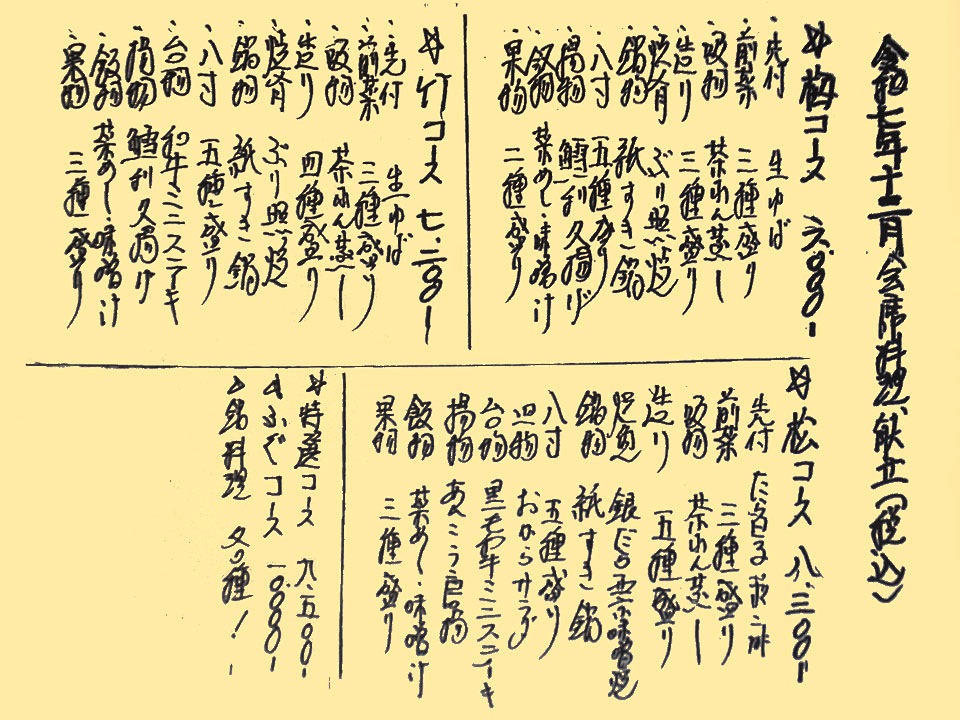 令和七年十二月会席料理献立(税込)
梅コース 六、000ー
先付 生ゆば
前菜 三種盛り
吸物 茶わん蒸し
造り 三種盛り
焼肴 ぶり照り焼
鍋物 紙すき鍋
八寸 五種盛り
揚物 鱈利久揚げ
飯物 菜めし・味噌汁
果物 二種盛り
竹コース 七、二00ー
先付 生ゆば
前菜 三種盛り
吸物 茶わん蒸し
造り 四種盛り
焼肴 ぶり照り焼
鍋物 紙すき鍋
八寸 五種盛り
台物 和牛ミニステーキ
揚物 鱈利久揚げ
飯物 菜めし・味噌汁
果物 三種盛り
松コース 八、三00ー
先付
前菜 三種盛り
吸物 茶わん蒸し
造り 五種盛り
焼魚 銀だら西京味噌焼
鍋物 紙すき鍋
八寸 五種盛り
皿物 おからサラダ
台物 黒毛和牛ミニステーキ
揚物 あんこう唐揚
飯物 菜めし・味噌汁
果物 三種盛り
特選コース 九、五00ー
ふぐコース 一0、000ー
鍋料理 各種!